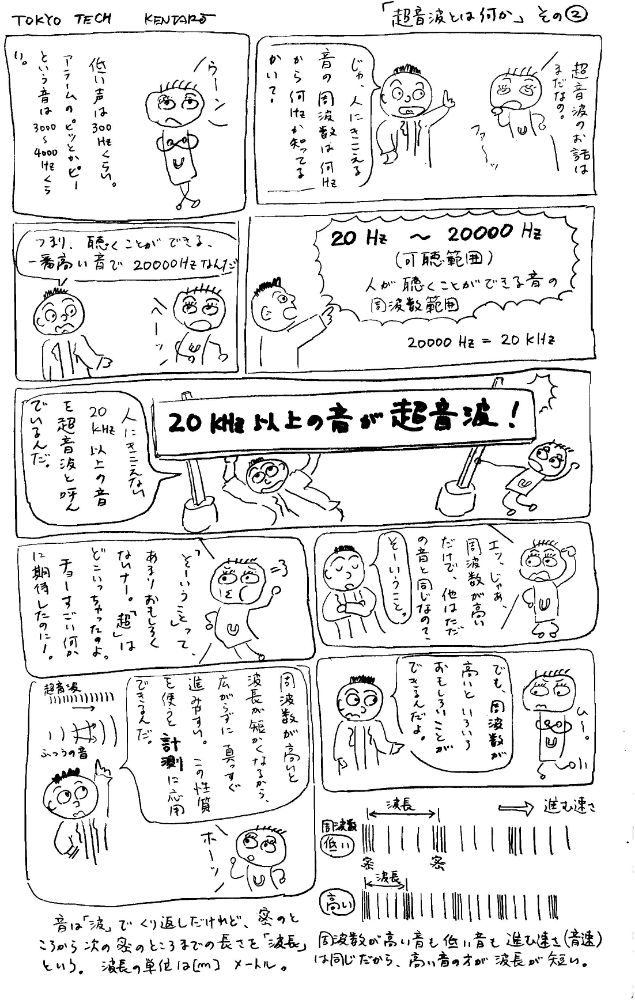 TOKYO TECH KENTARO
「超音波とは何か」その②
超音波のお話は
まだなの。
ファ〜ッ
じゃ、人にきこえる
音の周波数は何Hz
から何Hzか知ってる
かい？
ウーン
低い声は300
Hzくらい。
アラームのピッとかピー
という音は3000〜
4000Hzくら
い。
20 Hz 〜 20000 Hz
(可聴範囲)
人が聴くことができる音の
周波数範囲
20000 Hz = 20 KHz
つまり、聴くことができる、
一番高い音で20000Hzなんだ
ヘーッ
20 KHz以上の音が超音波！
人にきこえない
20KHz以上の音
を超音波と呼ん
でいるんだ。
エッ、じゃあ、
周波数が高い
だけで、他はただ
の音と同じなの？
そーいうこと。
「そーいうこと」って、
あまりおもしろく
ないナー。「超」は
どこいっちゃったのよ。
チョーすごい何か
に期待したのに！
ムー。
でも、周波数が
高いといろいろ
おもしろいことが
できるんだよ。
周波数が高いと
波長が短かくなるから、
広がらずに真っすぐ
進みやすい。この性質
を使って計測に応用
できるんだ。
超音波
ふつうの音
ホーッ
波長
進む速さ
周波数
低い
密
密
波長
高い
音は「波」でくり返しだけれど、密のと
ころから次の密のところまでの長さを「波長」
という。波長の単位は[m]メートル。
周波数が高い音も低い音も進む速さ(音速)
は同じだから、高い音の方が波長が短い。